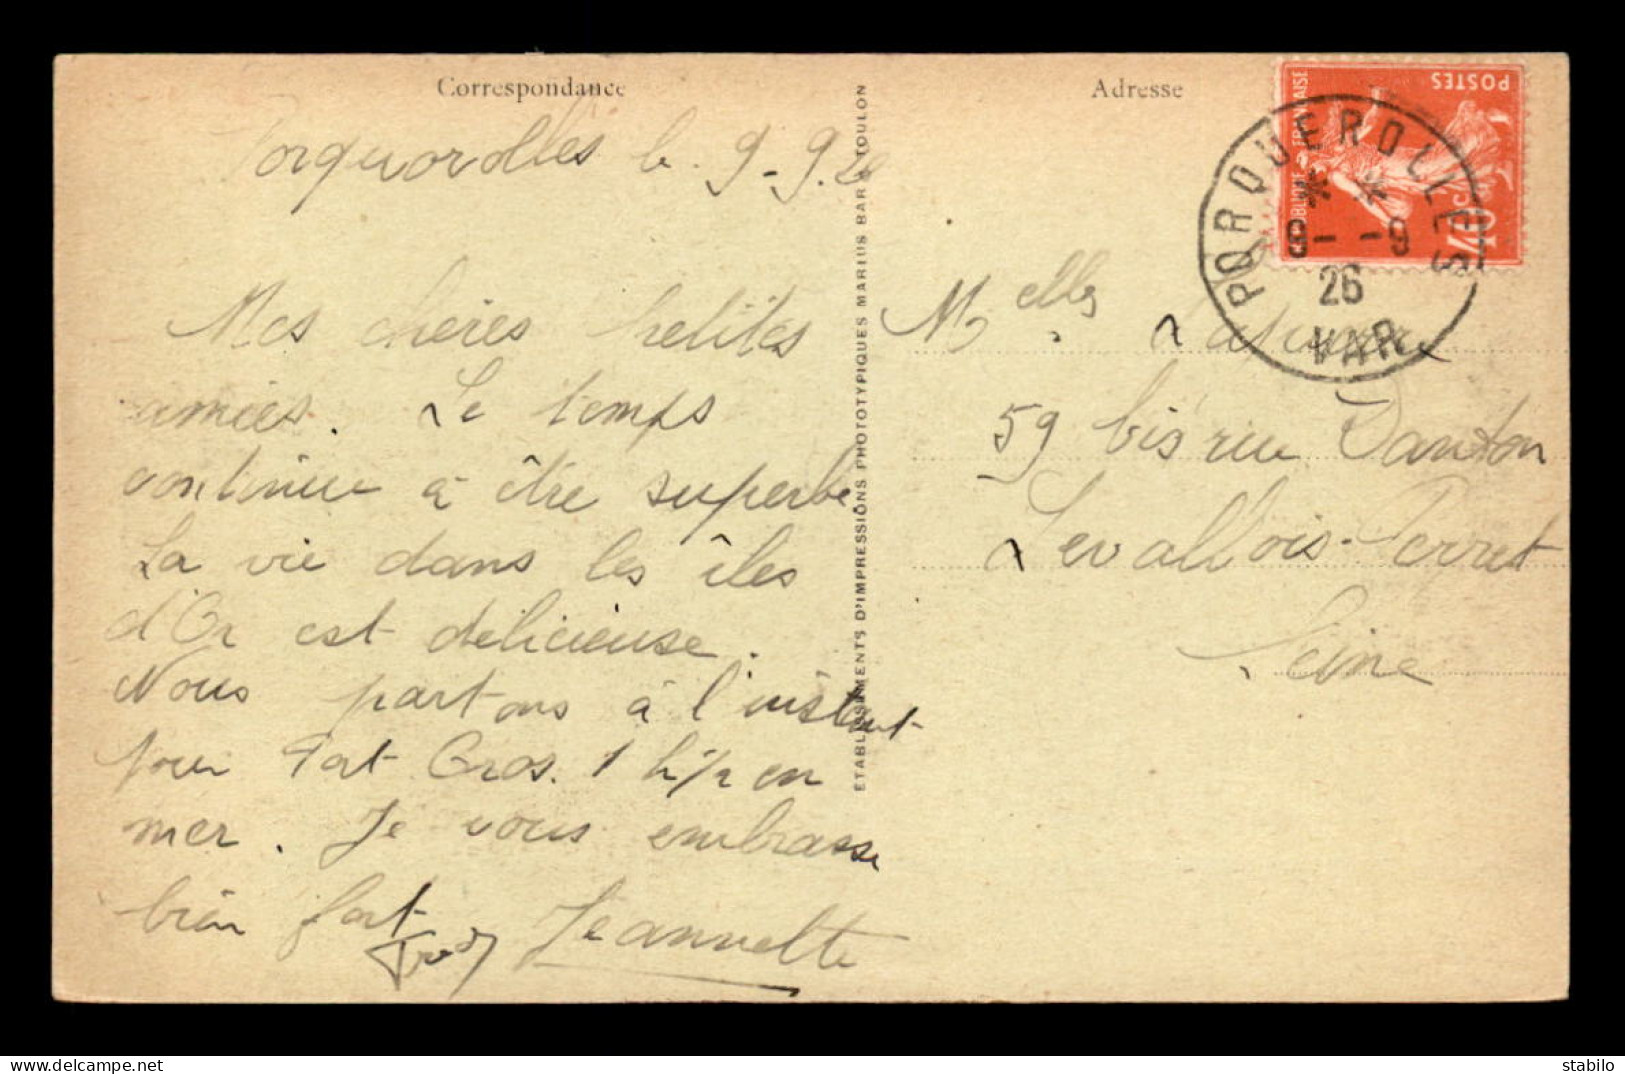 Correspondance
Porquorolles le 9-9.26
Mes chères petites
amies. Le temps
continue à être superbe
La vie dans les îles
d'Or est delicieuse.
Nous partons à l'instant
pour Port Cros. 1 h 1/2 en
mer. Je vous embrasse
bien fort
Jeannette
ÉTABLISSEMENTS D'IMPRESSIONS PHOTOTYPIQUES MARIUS BAR TOULON
Adresse
POSTES
10c
PORQUEROLLES
* *
9- -9
26
VAR
Melles
59 bis rue Danton
Levallois-Perret
Seine
delcampe.net
stabilo